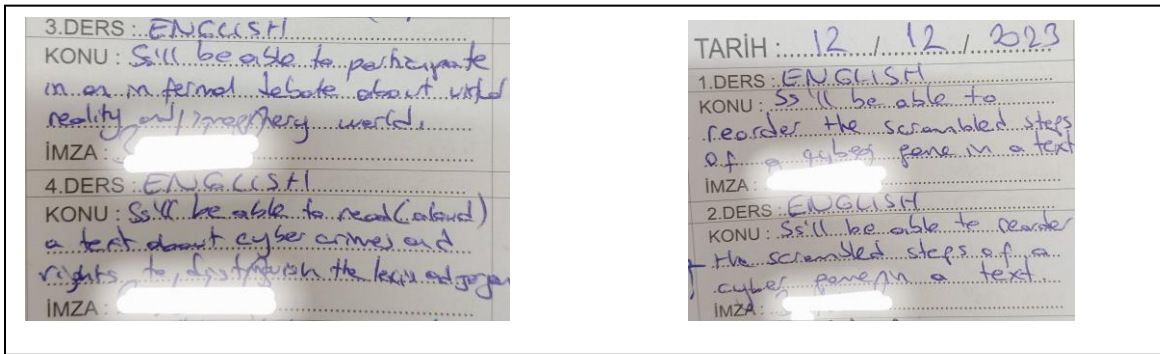 3.DERS : ENGLISH
KONU : Ss'll be able to participate
in an informal debate about virtual
reality and imaginary world.
İMZA :
4.DERS : ENGLISH
KONU : Ss'll be able to read (aloud)
a text about cyber crimes and
rights to distinguish the lexis and jargon
İMZA :
TARİH : 12 / 12 / 2023
1.DERS : ENGLISH
KONU : Ss'll be able to
reorder the scrambled steps
of a cyber game in a text
İMZA :
2.DERS : ENGLISH
KONU : Ss'll be able to reorder
the scrambled steps of a
cyber game in a text.
İMZA :